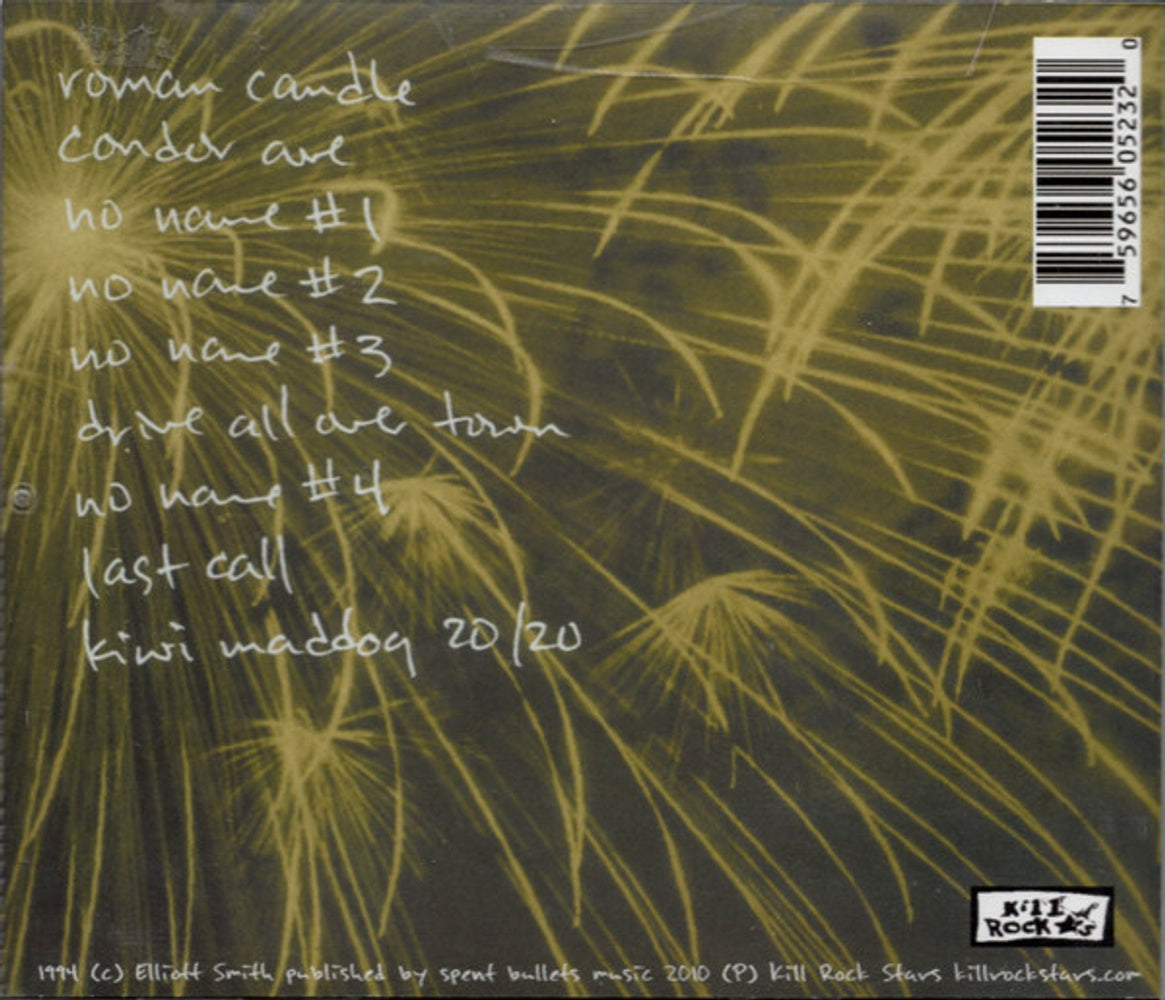 roman candle
condor ave
no name #1
no name #2
no name #3
drive all over town
no name #4
last call
kiwi maddog 20/20
7 59656 05232 0
Kill
ROCK ★s
1994 (c) Elliott Smith published by spent bullets music 2010 (P) Kill Rock Stars killrockstars.com